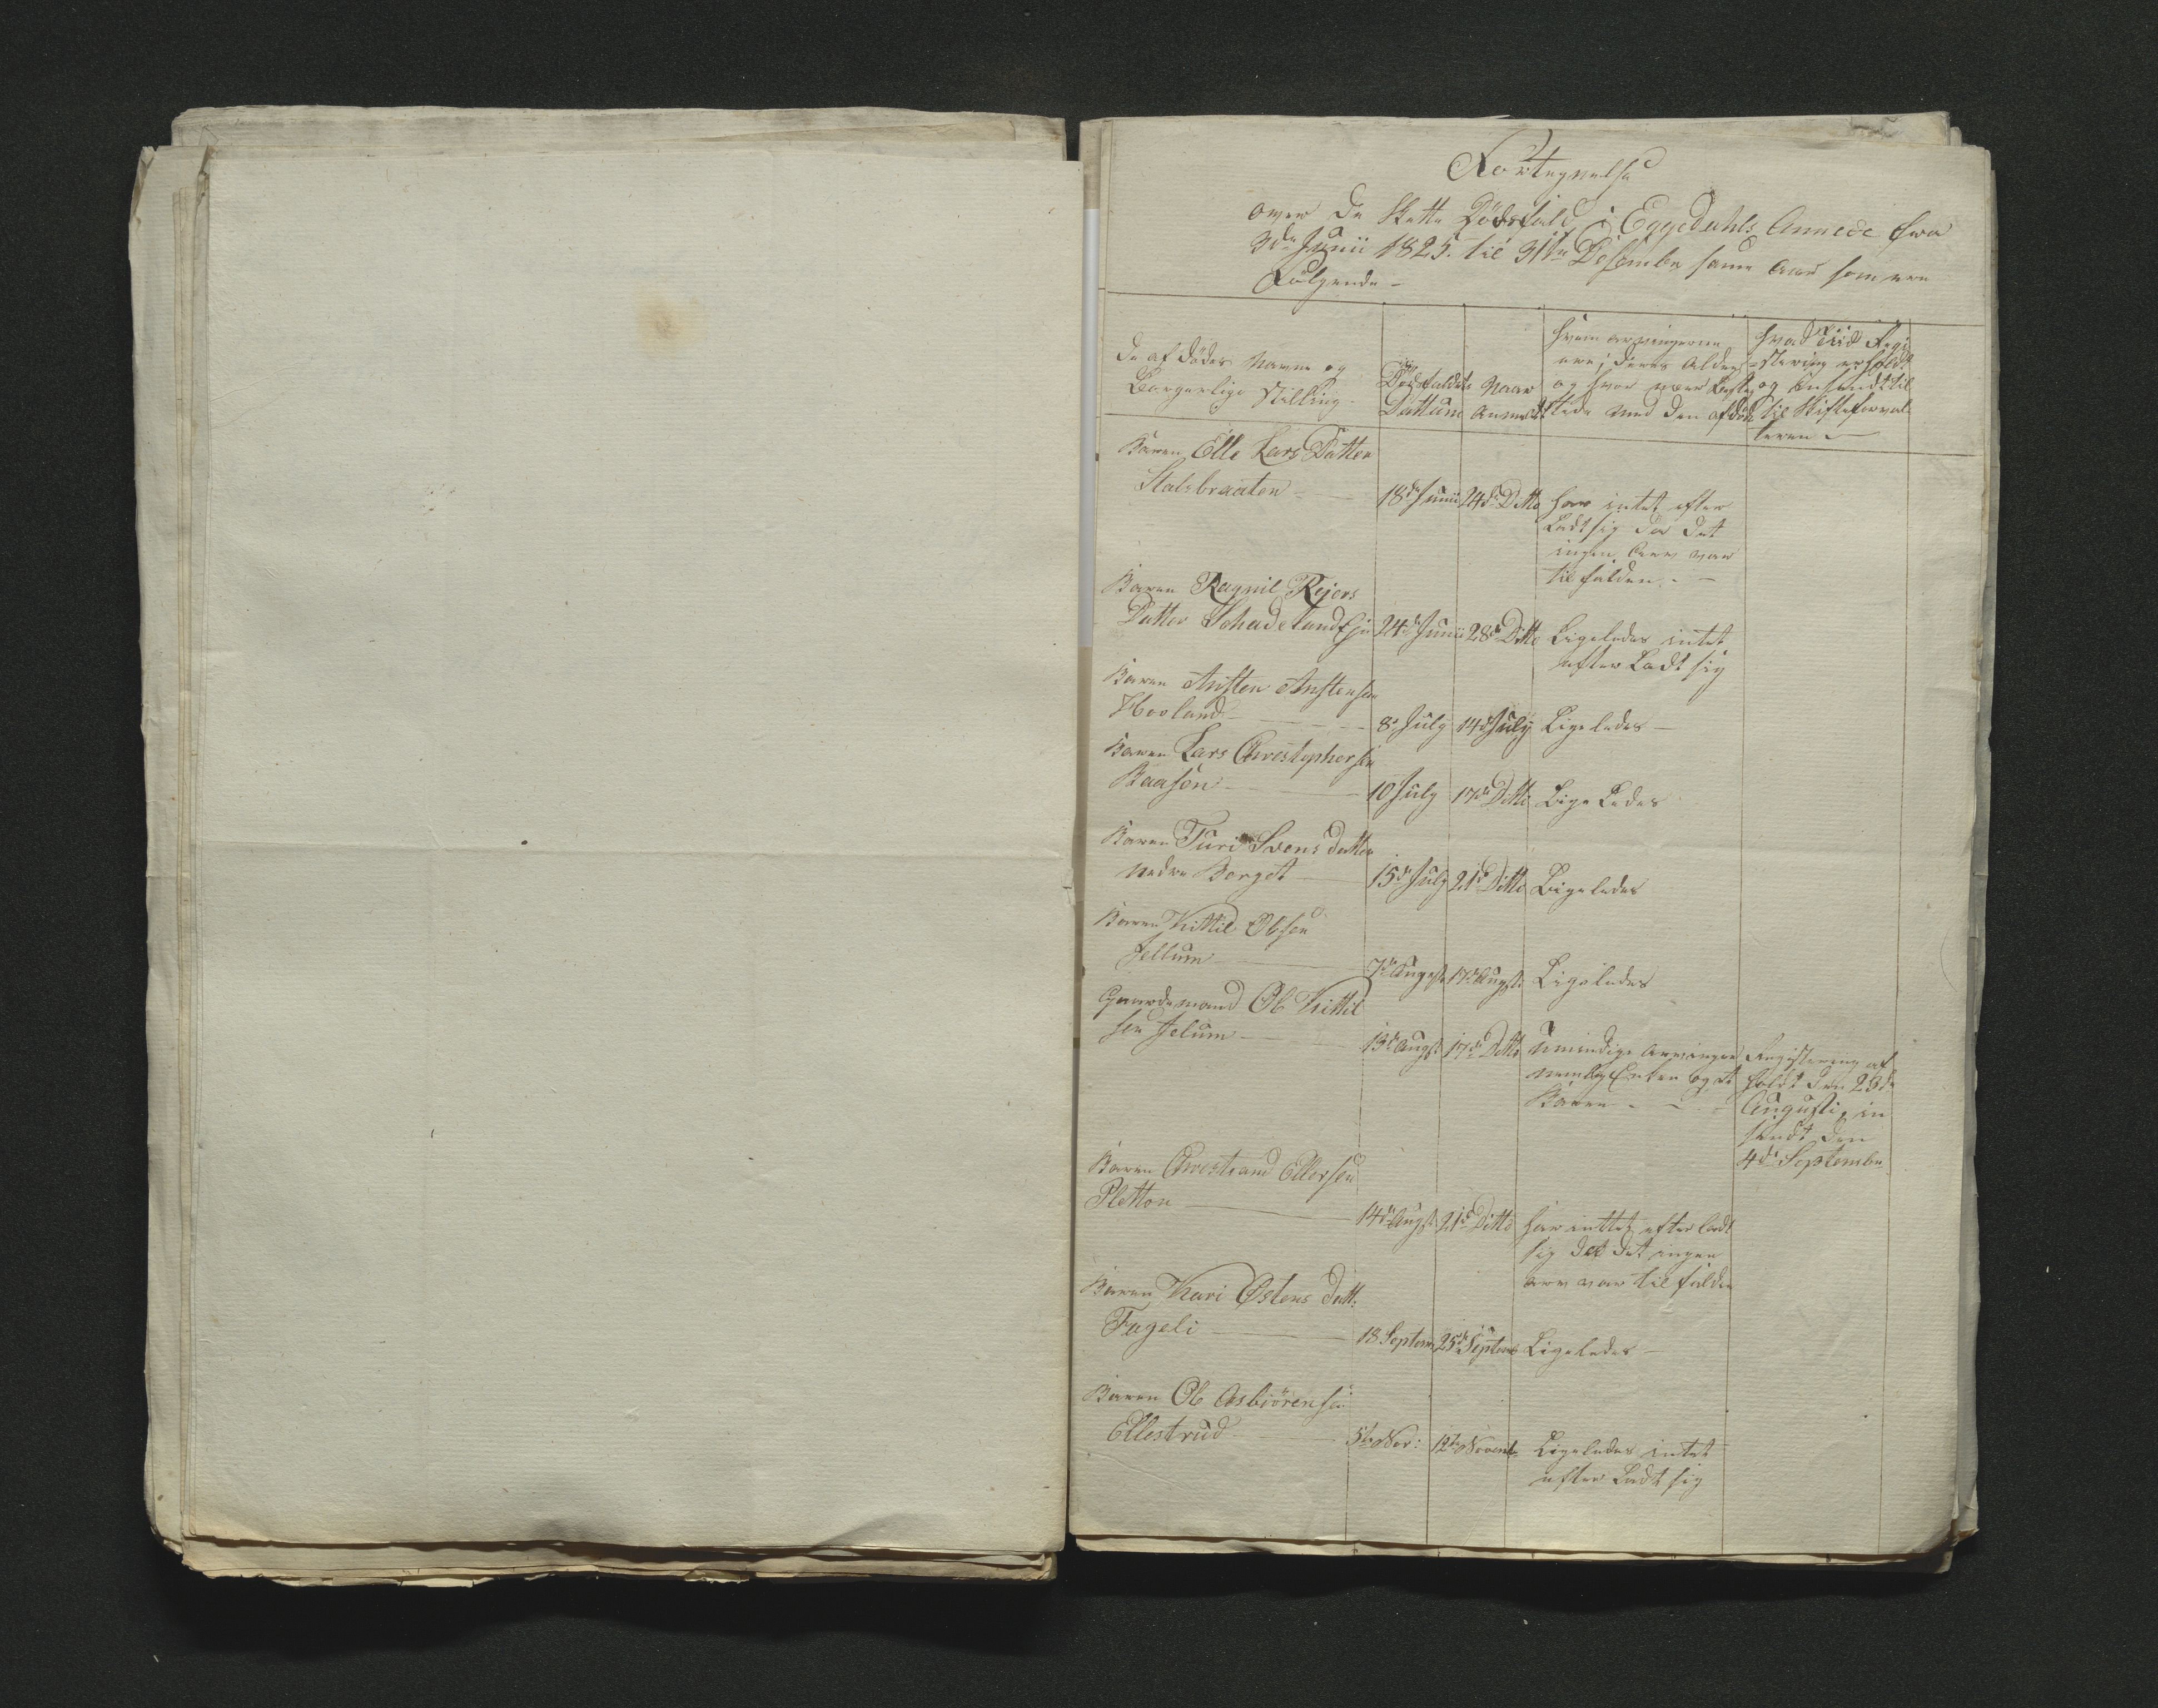 Fortegnelse
over de skette Dödsfald i Eggedahls Annexe fra
3de Junii 1825. til 31te Desember samme Aar som ere
Fölgende -
De af Dödes Navne og
Borgerlige Stilling -
Dödsfaldets
Dattum
Naar
Anmeldt
Hvem arvingerne
ere; deres Alder
og hvor nær Beslæg
tede med den afdöde
Hvad Tiid Regi
stering er holdt
og Insendt til
til Skifteforval
teren -
Baren Elle Lars Datter
Stalsbraaten - 18de Junii 24de Ditto Har intet efter
Ladt sig da det
ingen Arv var
til falden. -
Baren Ragnil Rejers
Datter Schadeland Eje 24de Junii 28de Ditto Ligeledes intet
efter Ladt sig
Baren Austen Anstensen
Hooland - 8de July 14de July Ligeledes -
Baren Lars Christophersen
Baason - 10 July 17de Ditto Lige Ledes
Baren Turi Svens datter
nedre Borget 15de July 21de Ditto Ligeledes
Baren Kittil Olsen
Jellum - 7de August 17de Augst Ligeledes
Gaardemand Ole Kittil
sen Jelum - 13de Augst 17de Ditto Umindige Arvinger
nemlig Enken og et
Baren -
Registering af
holdt den 23de
Augusti, in
sendt den
4de September
Baren Christiand Ellersen
Pletton 14de Augst 21de Ditto Har inttet efter ladt
sig det det ingen
arv var til falden
Baren Kari Østens Datt:
Fageli 18 Septem 25de Septem Ligeledes -
Baren Ole Asbiörensen
Ellestrud 5te Nov: 12te Novemb Ligeledes intet
efter Ladt sig